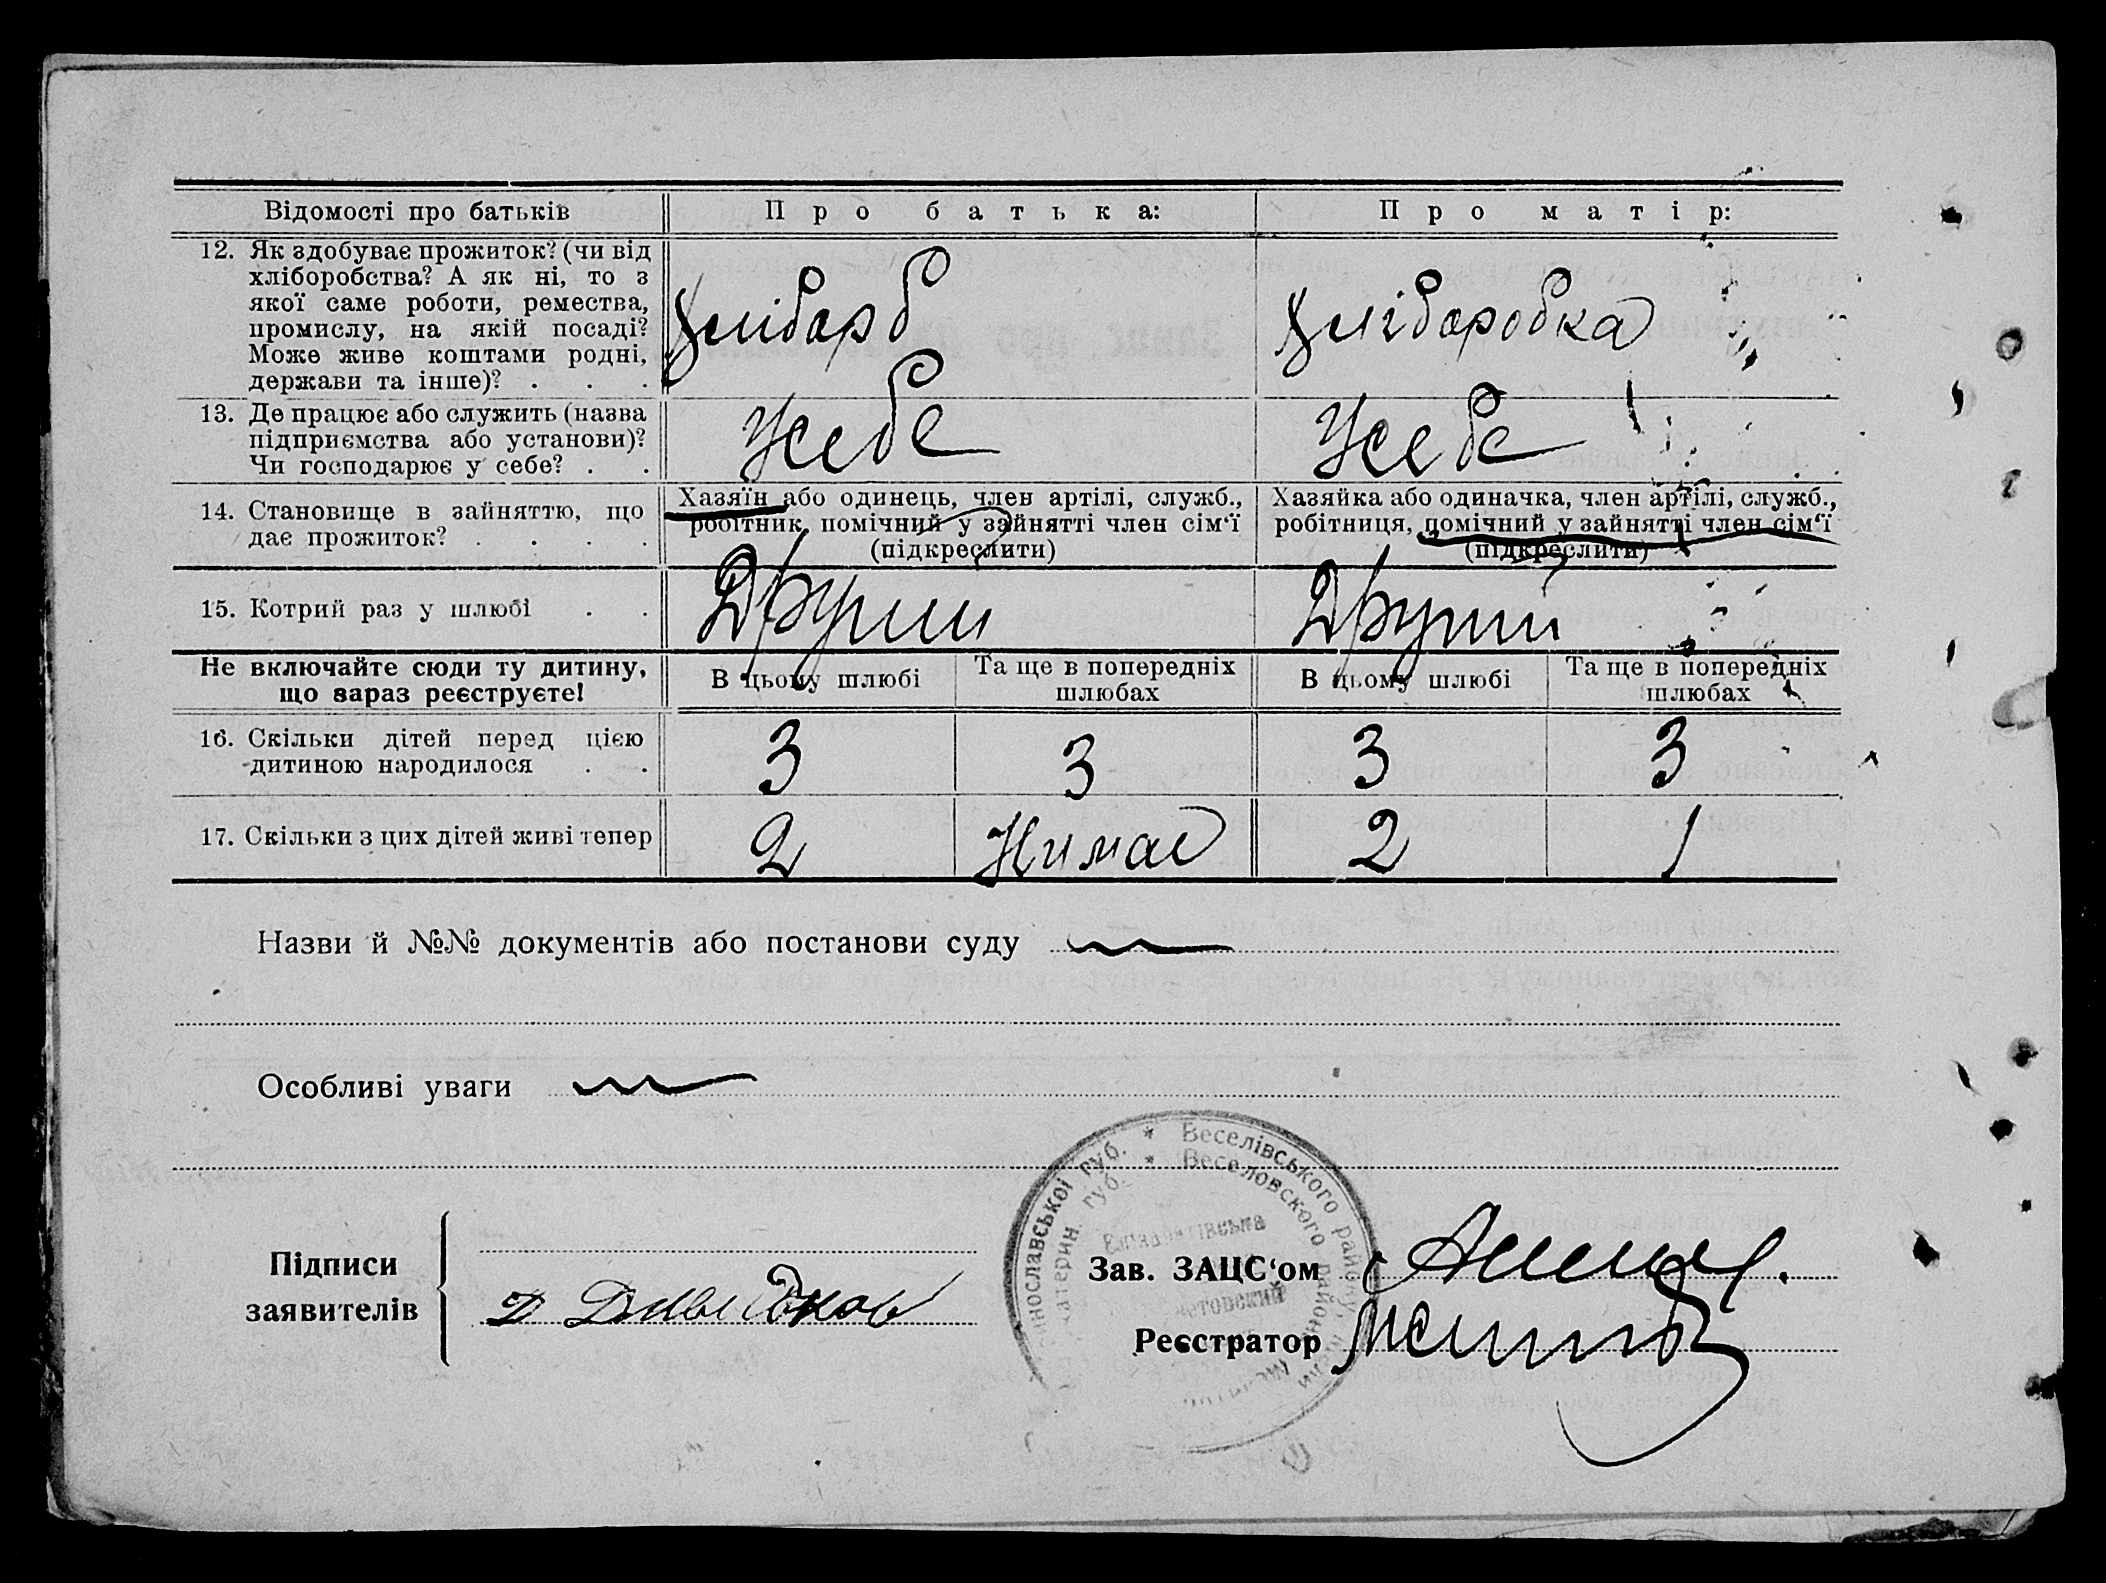 Відомості про батьків
Про батька:
Про матір:
12. Як здобуває прожиток? (чи від
хліборобства? А як ні, то з
якої саме роботи, ремества,
промислу, на якій посаді?
Може живе коштами родні,
держави та інше)? . . .
хлібарб
хлібаробка
13. Де працює або служить (назва
підприємства або установи)?
Чи господарює у себе? . .
Усебе
Усебе
14. Становище в зайняттю, що
дає прожиток? . . . .
Хазяїн або одинець, член артілі, служб.,
робітник, помічний у зайнятті член сім'ї
(підкреслити)
Хазяйка або одиначка, член артілі, служб.,
робітниця, помічний у зайнятті член сім'ї
(підкреслити)
15. Котрий раз у шлюбі . .
Другий
Другий
Не включайте сюди ту дитину,
що зараз реєструєте!
В цьому шлюбі
Та ще в попередніх
шлюбах
В цьому шлюбі
Та ще в попередніх
шлюбах
16. Скільки дітей перед цією
дитиною народилося . .
3
3
3
3
17. Скільки з цих дітей живі тепер
2
Нимає
2
1
Назви й №№ документів або постанови суду
Особливі уваги
* Веселівського району,
* Веселовского район
инославської губ.
катерин. губ.
Підписи
заявителів
Зав. ЗАЦС'ом
Реєстратор